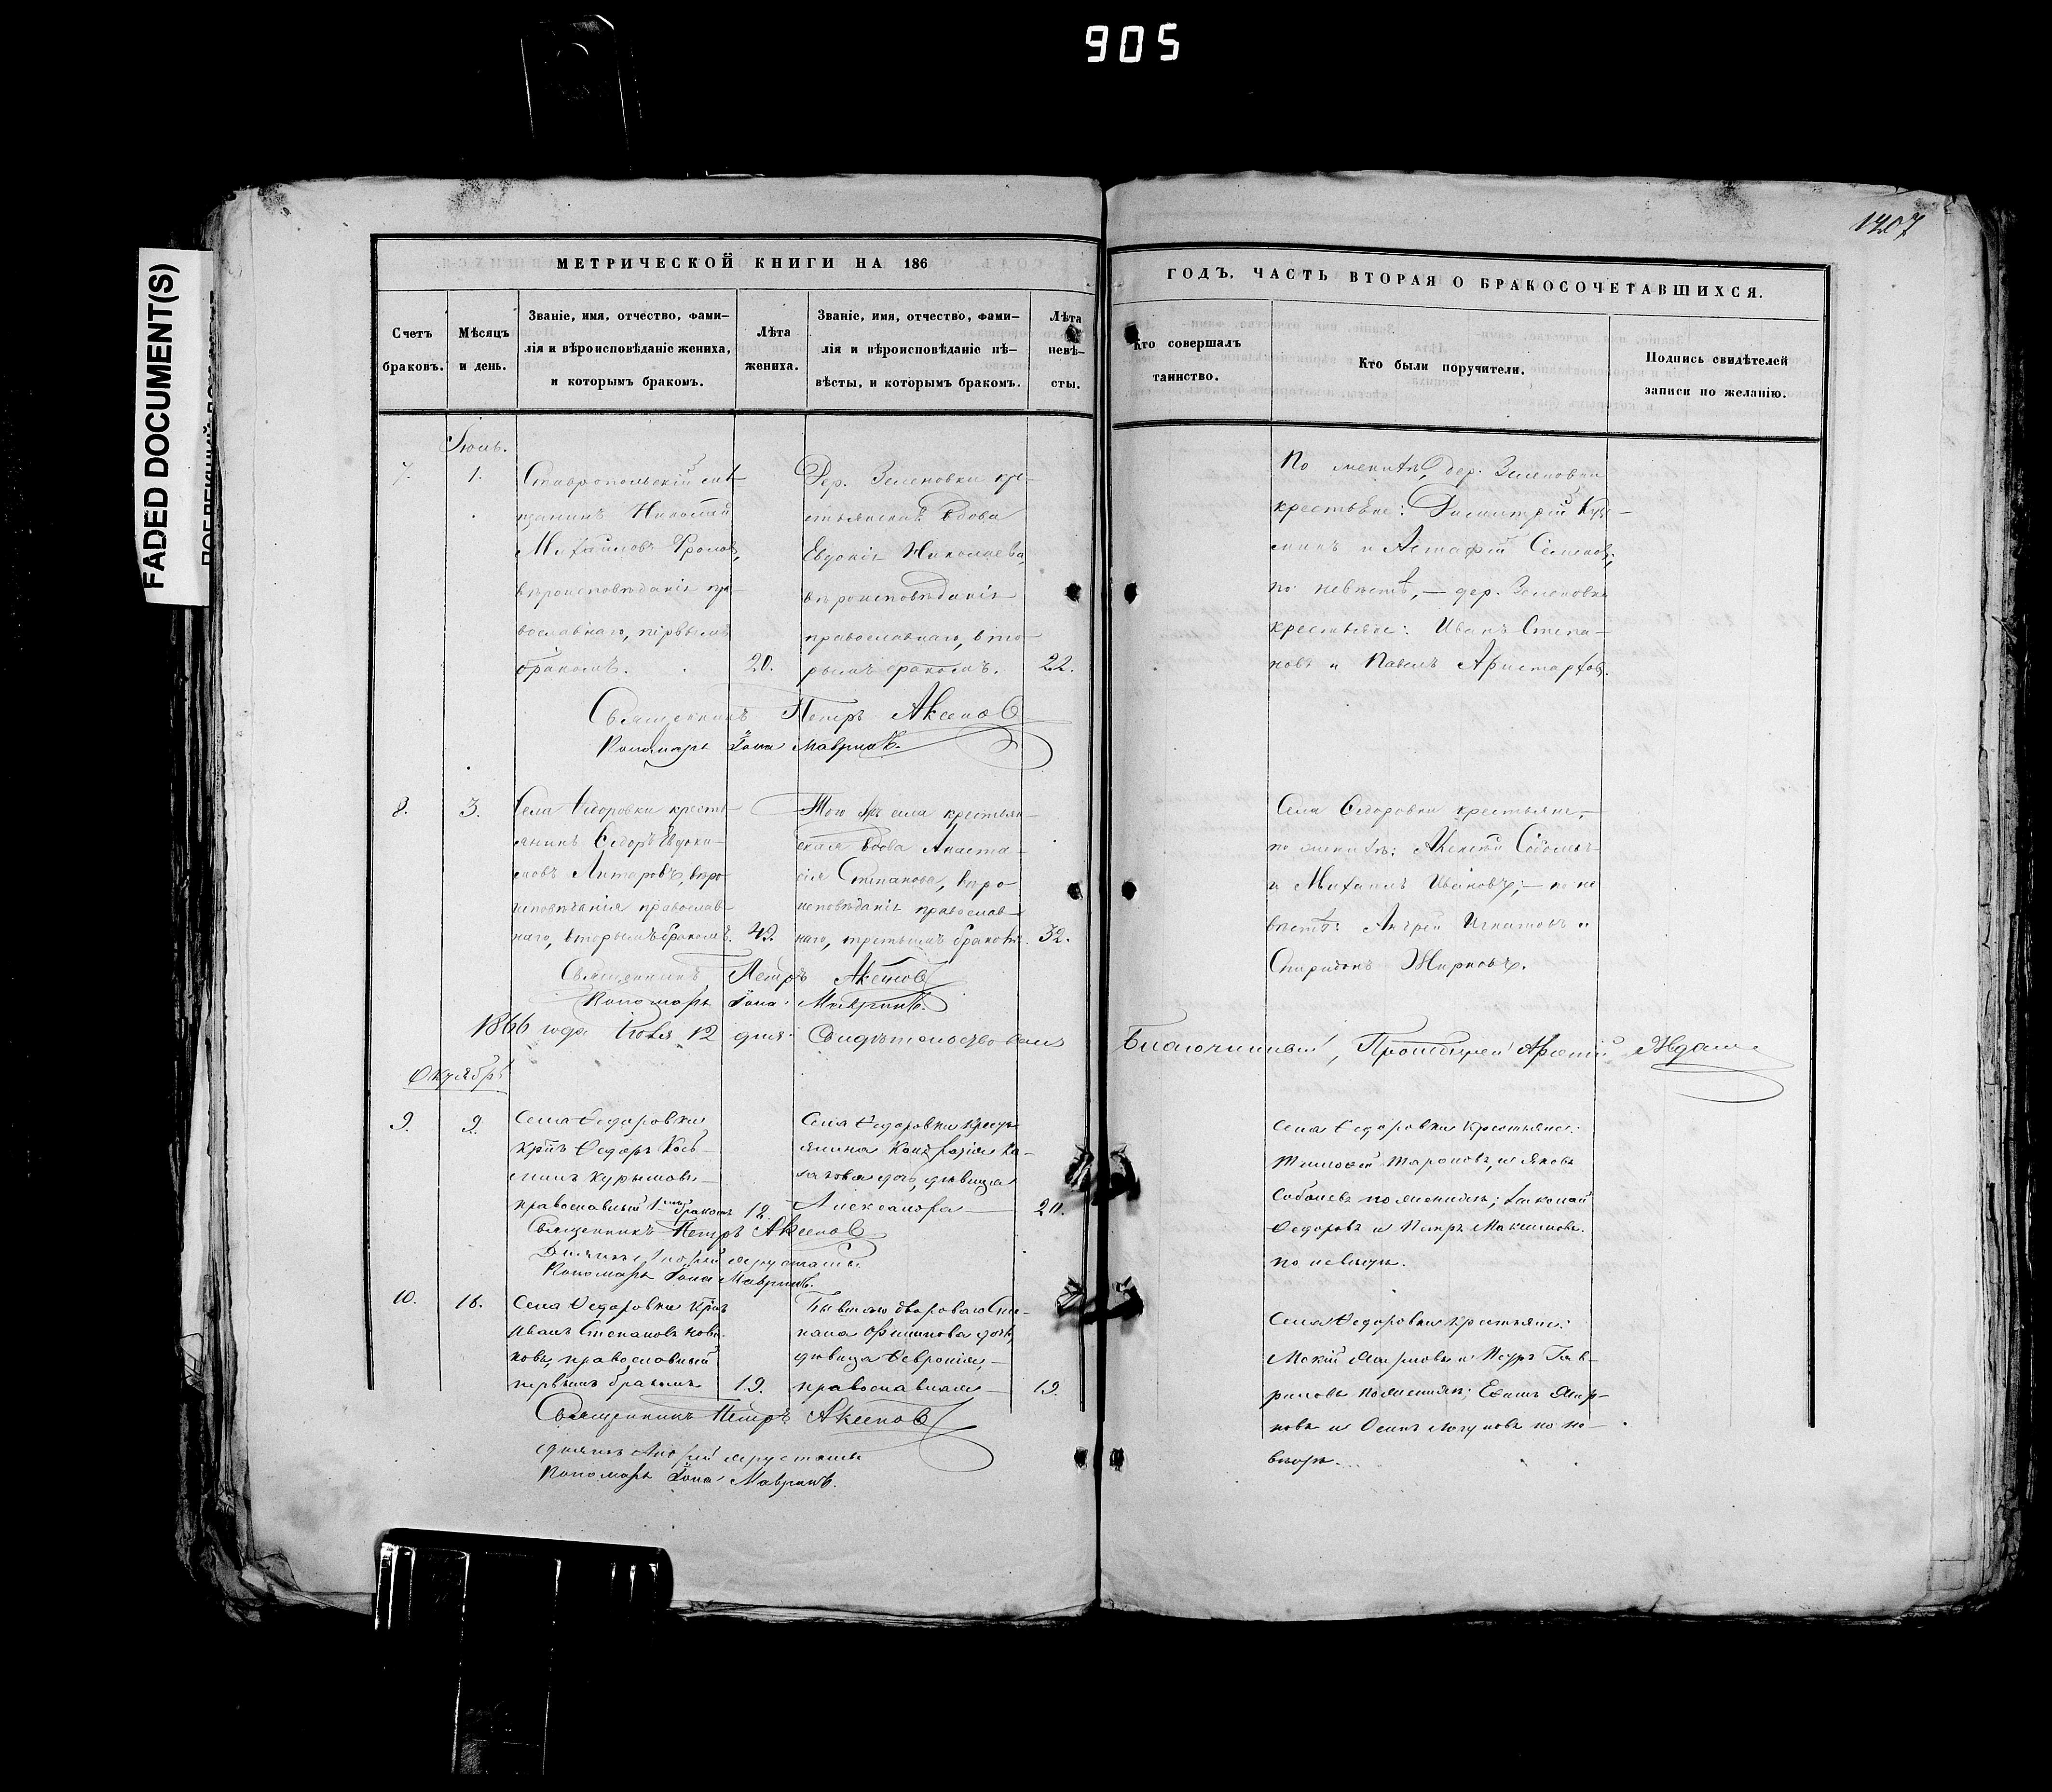 905
1707
FADED DOCUMENT(S)
МЕТРИЧЕСКОЙ КНИГИ НА 186
ГОДЪ, ЧАСТЬ ВТОРАЯ О БРАКОСОЧЕТАВШИХСЯ.
Счетъ
браковъ.
Мѣсяцъ
и день.
Званіе, имя, отчество, фами-
лія и вѣроисповѣданіе жениха,
и которымъ бракомъ.
Лѣта
жениха.
Званіе, имя, отчество, фами-
лія и вѣроисповѣданіе нѣ-
вѣсты, и которымъ бракомъ.
Лѣта
невѣ-
сты.
Кто совершалъ
таинство.
Кто были поручители.
Подпись свидѣтелей
записи по желанію.
Іюль.
7.
1.
Ставропольскій мѣ-
щанинъ Николай
Михайловъ Фроловъ,
вѣроисповѣданія пра-
вославнаго, первымъ
бракомъ.
20.
Дер. Зеленовки кре-
стьянская вдова
Евдокія Николаева,
вѣроисповѣданія
православнаго, вто-
рымъ бракомъ.
22.
По женихѣ, дер. Зеленовки
крестьяне: Димитрій Кузь-
минъ и Астафій Семеновъ,
по невѣстѣ, — дер. Зеленовки
крестьяне: Иванъ Степа-
новъ и Павелъ Аристарховъ.
Священникъ Петръ Аксеновъ
Пономарь Іона Мавринъ.
8.
3.
Села Ѳедоровки кресть-
янинъ Ѳедоръ Евдоки-
мовъ, вѣро-
исповѣданія православ-
наго, вторымъ бракомъ.
49.
Того жъ села крестьян-
ская вдова Анаста-
сія Степанова, вѣро-
исповѣданія православ-
наго, третьимъ бракомъ.
32.
Села Ѳедоровки крестьяне,
по женихѣ: Алексѣй Соболевъ
и Михаилъ Ивановъ; — по не
вѣстѣ: Андрей Игнатовъ и
Спиридонъ Жирновъ.
Священникъ Петръ Аксеновъ
Пономарь Іона Мавринъ.
1866 года Іюля 12 дня Свидѣтельствовалъ
Благочинный, Протоіерей Арсеній
Октябрь
9.
9.
Села Ѳедоровки
крⷭ҇нъ Ѳедоръ Кось-
минъ
православный 1ᵐᵉ бракомъ
18.
Села Ѳедоровки крестья-
нина
дочь, дѣвица
Александра
20.
Села Ѳедоровки крестьяне:
Тимоѳей и Яковъ
Соболевъ по женихѣ;
Ѳедоровъ и Петръ Максимовъ
по невѣстѣ.
Священникъ Петръ Аксеновъ
Пономарь Іона Мавринъ.
10.
16.
Села Ѳедоровки
Иванъ Степановъ Нови-
ковъ, православный
первымъ бракомъ
19.
Бывшаго двороваго Сте-
пана дочь,
дѣвица Ѳевронія,
православная
19.
Села Ѳедоровки крестьяне:
и Петръ Гав-
риловъ по женихѣ;
и Осипъ по не-
вѣстѣ.
Священникъ Петръ Аксеновъ
Пономарь Іона Мавринъ.